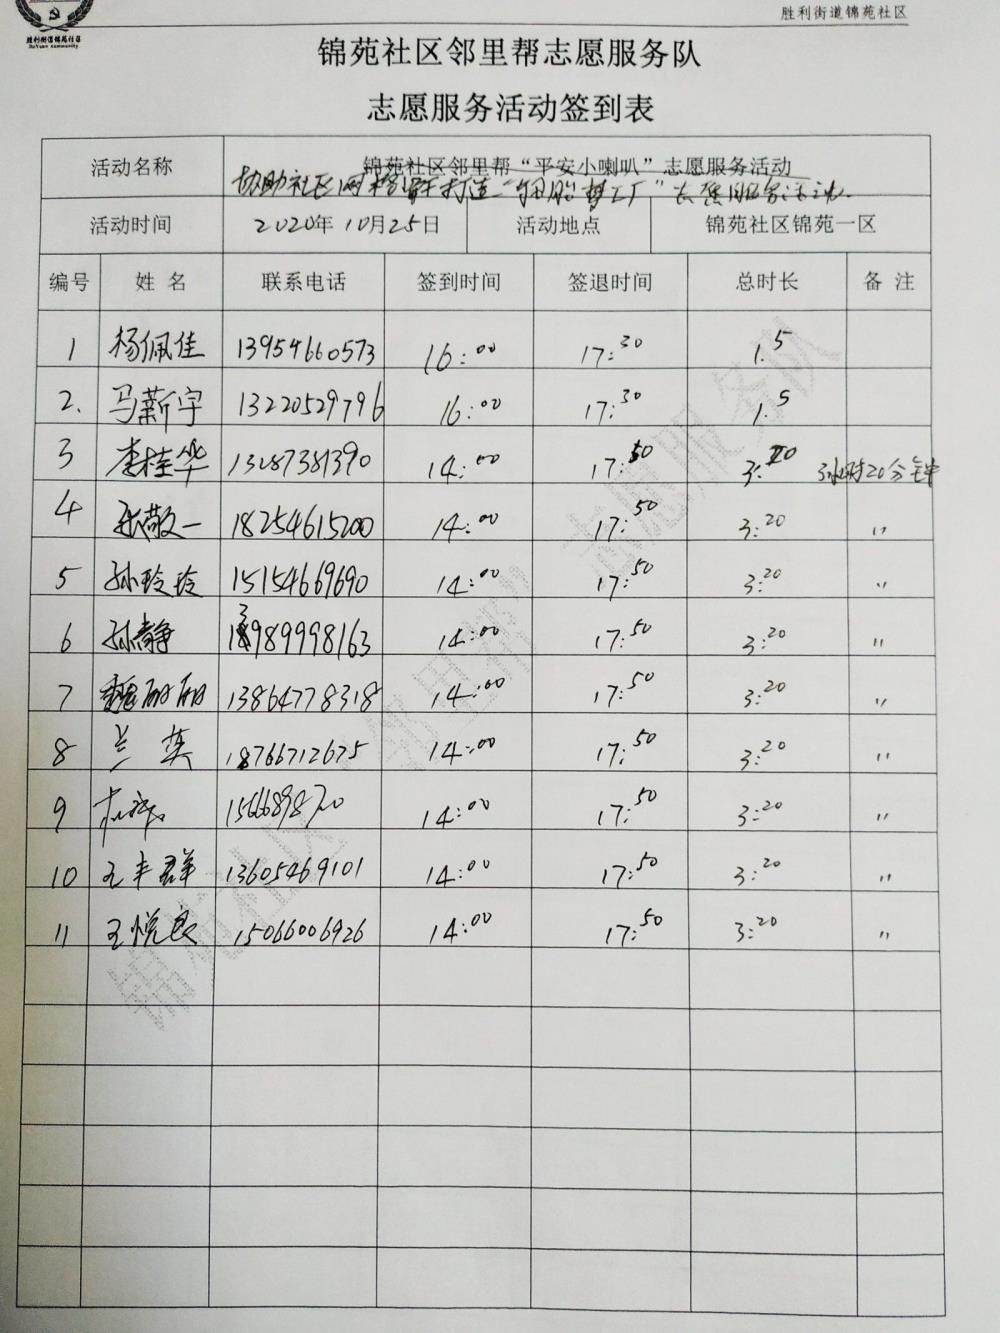 胜利街道锦苑社区
胜利街道锦苑社区
JinYuan community
锦苑社区邻里帮志愿服务队
志愿服务活动签到表
活动名称 锦苑社区邻里帮“平安小喇叭”志愿服务活动
协助社区网格 打造“ 梦工厂”志愿服务活动
活动时间 2020年10月25日 活动地点 锦苑社区锦苑一区
编号 姓 名 联系电话 签到时间 签退时间 总时长 备 注
1 杨佩佳 13954660573 16:00 17:30 1.5
2. 马新宇 13220529796 16:00 17:30 1.5
3 李桂华 13287381390 14:00 17:50 3:20 3小时20分钟
4 张敬一 18254615200 14:00 17:50 3:20 〃
5 孙玲玲 15154669690 14:00 17:50 3:20 〃
6 孙静 13989998163 14:00 17:50 3:20 〃
7 魏丽丽 13864778318 14:00 17:50 3:20 〃
8 兰英 18766712675 14:00 17:50 3:20 〃
9 14:00 17:50 3:20 〃
10 王丰群 13605469101 14:00 17:50 3:20 〃
11 王悦良 15066006926 14:00 17:50 3:20 〃
锦苑社区“邻里帮”志愿服务队